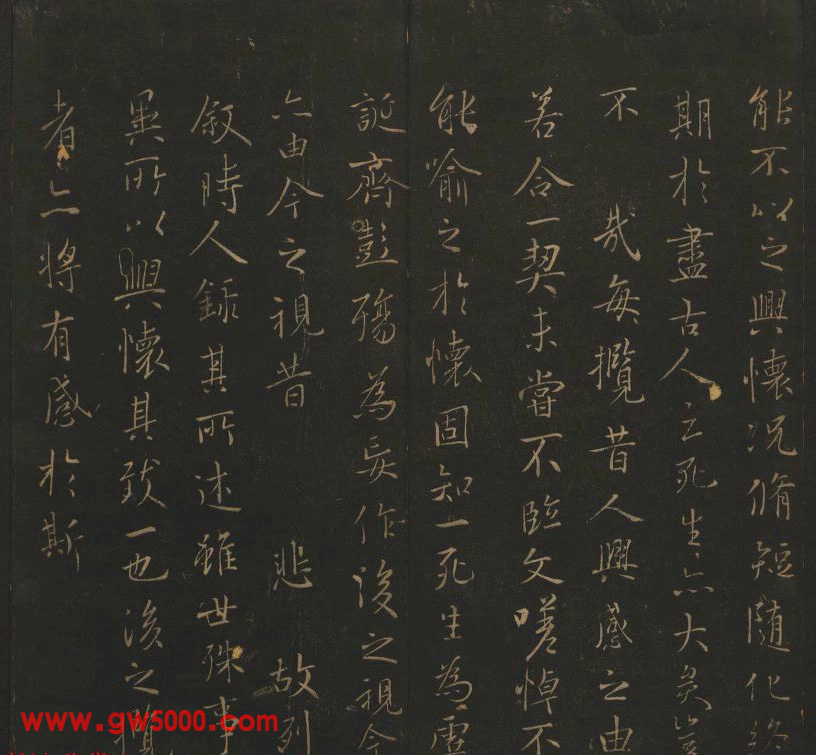 能不以之興懷況脩短隨化終
期於盡古人云死生亦大矣豈
不 哉每攬昔人興感之由
若合一契未嘗不臨文嗟悼不
能喻之於懷固知一死生為虛
誕齊彭殤為妄作後之視今
亦由今之視昔 悲 故列
叙時人錄其所述雖世殊事
異所以興懷其致一也後之攬
者亦將有感於斯
www.gw5000.com